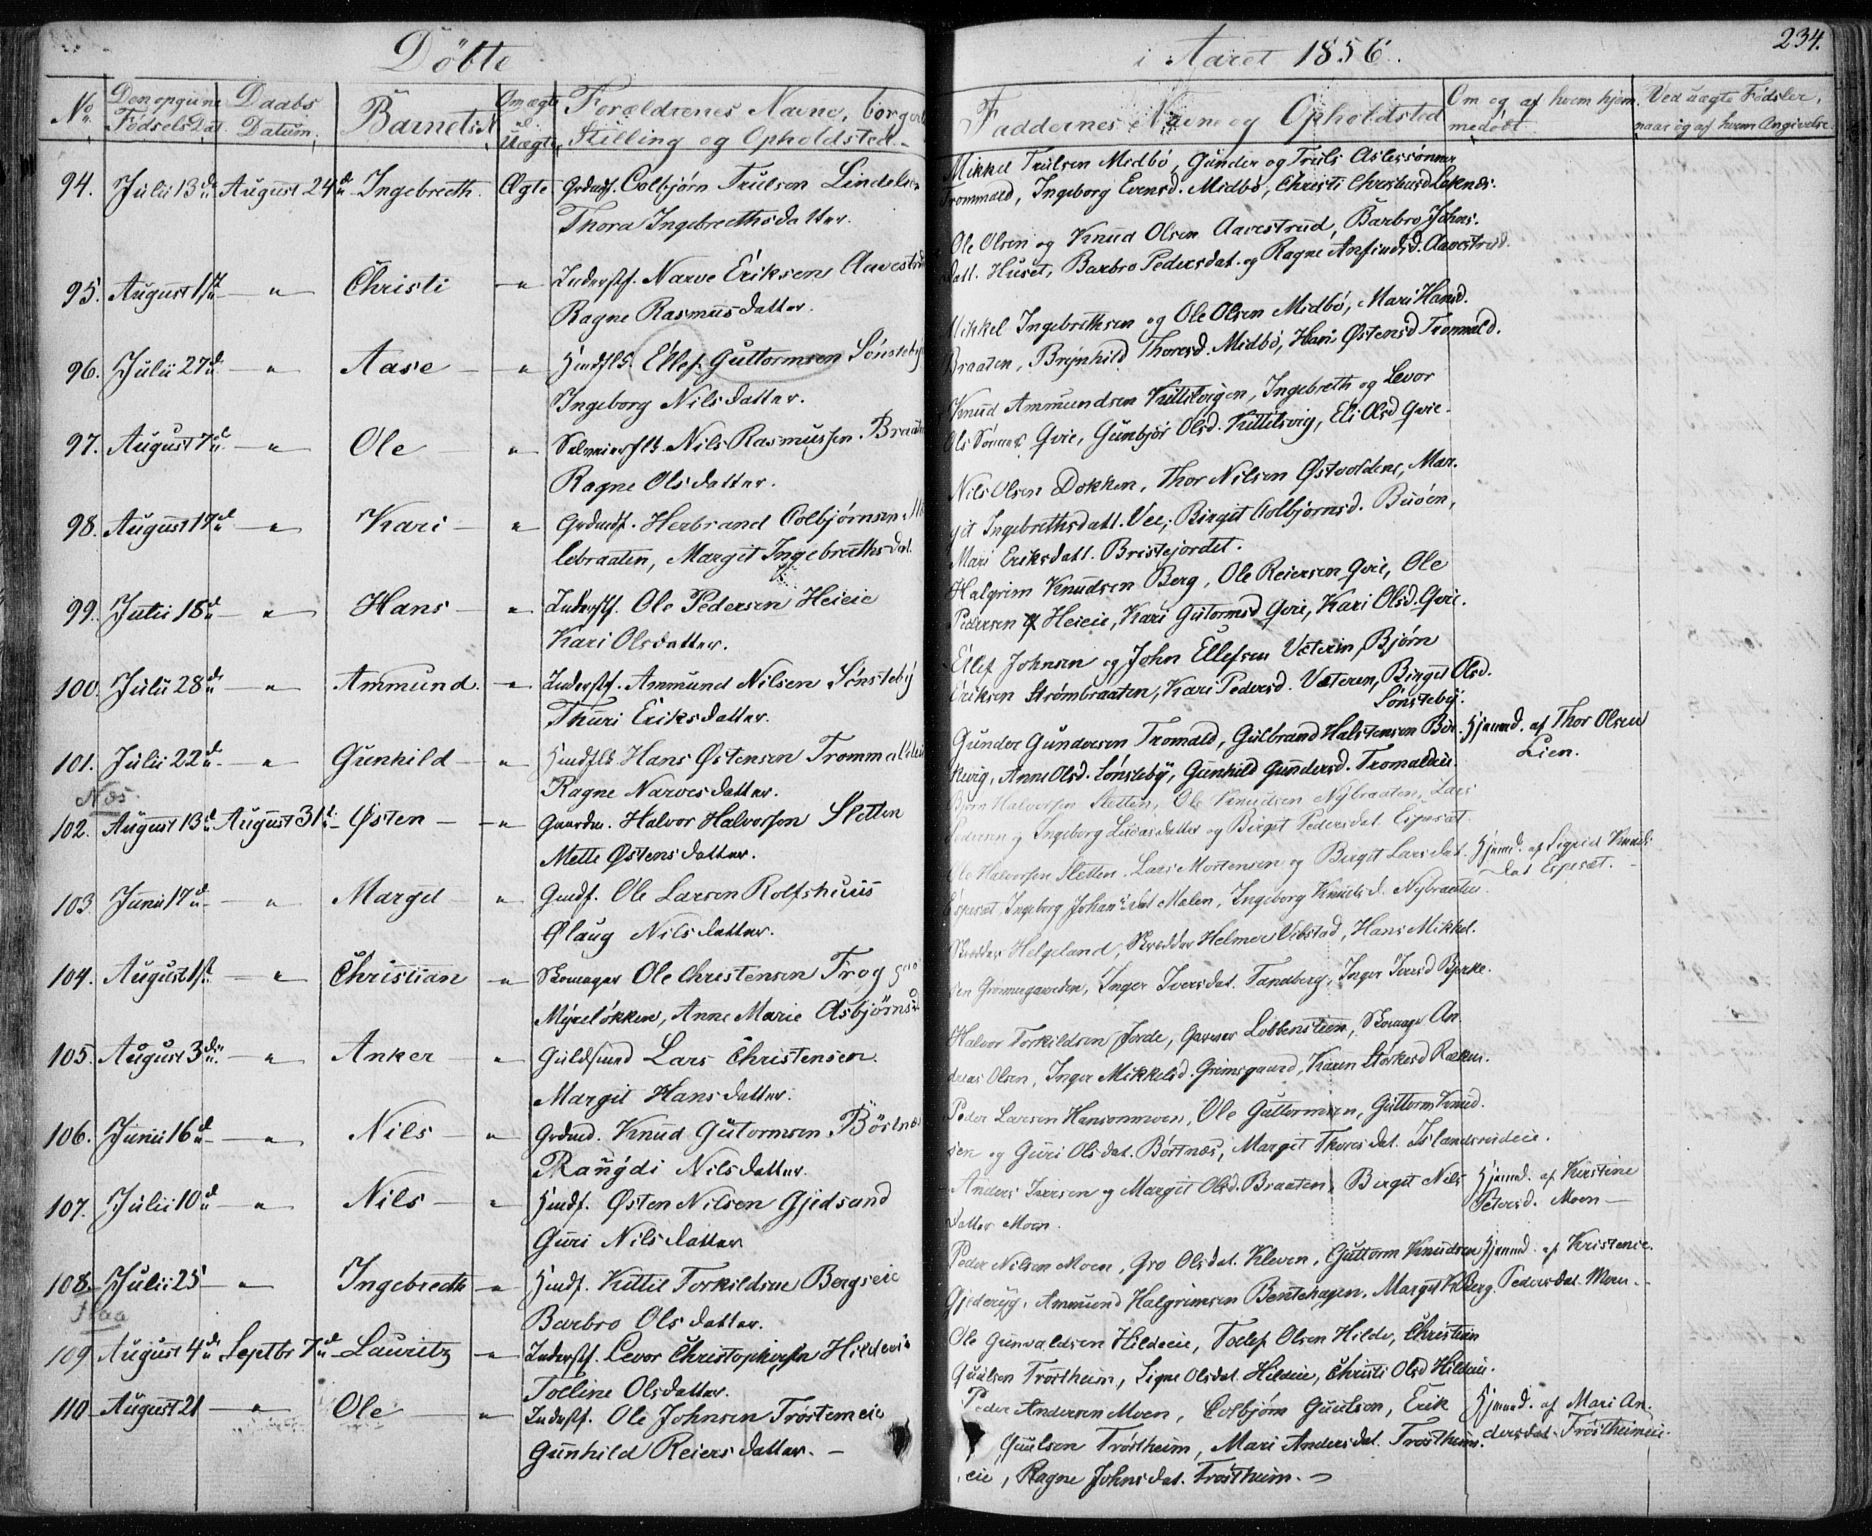 Döbte
i Aaret 1856.
234.
No
Den opgivne Fødsels Dat.
Daabs Datum,
Barnets N
Om ægte el. Uægte,
Forældrenes Navne, borgerl
Stilling og Opholdsted.
Faddernes Navne og Opholdsted
Om og af hvem hjem
medøbt.
Ved uægte Fødsler,
naar og af hvem Angivelse.
94. Julii 13de August 24de Ingebreth. Ægte Grdmdf. Colbjørn Trulsen Lindels
Thora Ingebrethsdatter.
Mikkel Trulsen Midbö, Gunder og Truls Aslessønner
Trommald, Ingeborg Evensd. Midbö, Christi Leknes.
95. August 1st - " - Christi - " Inderstf. Narve Eriksen Aavestr
Ragne Rasmusdatter.
Ole Olsen og Knud Olsen Aavestrud, Barbro Johns.
datt. Huset, Barbro Pedersdat. og Ragne Anfindsd. Aavestrud.
96. Julii 27de - " - Aase - " Ellef Guttormsen Sønsteby
Ingeborg Nilsdatter.
Mikkel Ingebrethsen og Ole Olsen Midbö, Mari Hansd.
Braaten, Brynhild Thoresd. Midbö, Hari Østensd Trommald.
97. August 7de - " - Ole - " Nils Rasmussen Braaten
Ragne Olsdatter.
Knud Ammundsen Kittilsvigen, Ingebreth og Levor
Ols Sønner Gvie, Gunbjör Olsd. Kittilsvig, Eli Olsd Gvie.
98. August 17de - " - Kari - " Grdmdf. Herbrand Colbjørnsen
lebraaten, Margit Ingebrethsdat.
Nils Olsen Dokken, Thor Nilsen Østvolden, Mar.
git Ingebrethsdatt. Vee, Birgit Colbjørnsd. Buöen,
Mari Eriksdatt. Bristejordet.
99. Julii 18de - " - Hans - " Inderstf. Ole Pedersen Heieie
Kari Olsdatter.
Halgrim Knudsen Berg, Ole Reiersen Gvie, Ole
Pedersen Heieie, Kari Gutormsd Gvie, Kari Olsd. Gvie.
100. Julii 28de - " - Ammund. - " Inderstf. Ammund Nilsen Sønsteby
Thuri Eriksdatter.
Ellef Johnsen og John Ellefsen Veteren, Bjørn
Eriksen Strømbraaten, Kari Pedersd. Væteren, Birget Olsd.
Sønsteby.
101. Julii 22de - " - Gunhild - " Hans Østensen Trommald
Ragne Narvesdatter.
Gunder Gundersen Tromald, Gulbrand Halstensen Bir.
kvig, Anne Olsd. Sønsteby, Gunhild Gundersd. Tromaldeie.
Hjemmd. af Thor Olsen
Lien.
Næs.
102. August 13de August 31te Østen - " - Gaardm. Halvor Halvorsen Sletten
Mette Østensdatter.
Bjørn Halvorsen Sletten, Ole Knudsen Nybraaten, Lars
Pedersen og Ingeborg Lucasdatter og Birget Pedersdat. Espeset
103. Junii 17de - " - Margit - " Gmdf. Ole Larsen Rolfshuus
Ølaug Nilsdatter.
Ole Halvorsen Sletten, Lars Mortensen og Birgit Larsdat.
Espeset, Ingeborg Johansdat Malen, Ingeborg Knudsd. Nybraaten.
Hjemd. af Sigrid Knuds-
dat Espeset.
104. August 1st - " - Christian - " Skomager Ole Christensen Frog
Myreløkken, Anne Marie Asbjørnsd
Skrædder Helgeland, Skrædder Helmer Vibstad, Hans Mikkel.
sen Grimsgaarden, Inger Iversdat. Tandberg, Inger Iversd Bjerke.
105. August 3de - " - Anker - " Guldsmd Lars Christensen.
Margit Hansdatter.
Halvor Torkildsen Jorde, Garver Lobbenstien, Skomager An.
dreas Olsen, Inger Mikkelsd. Grimsgaard, Karen Storkersd Rækn.
106. Junii 16de - " - Nils - " Grdmd. Knud Gutormsen Börtnæs
Rangdi Nilsdatter.
Peder Larsen Hansonmoen, Ole Guttormsen, Guttorm Knud.
sen og Guri Olsdat. Börtnæs, Margit Thoresdat. Islandsrudeie.
107. Julii 10de - " - Nils - " Hmdf. Østen Nilsen Gjedsand
Guri Nilsdatter
Anders Iversen og Margit Olsd. Braaten, Birgit Nils
datter Moen.
Hjemmd. af Kirstine
Petersd. Moen -
108. Julii 25 - " - Ingebreth - " Hmdf. Kittil Torkildsen Bergseie
Barbro Olsdatter.
Peder Nilsen Moen, Gro Olsdat. Kleven, Guttorm Knudsen
Gjederyg, Ammund Halgrimsen Bentehagen, Margit Berg.
Hjemmd. af Kristence.
Pedersdat. Moen. -
Flaa
109 August 4de Septbr 7de Lauritz - " Inderstf. Levor Christophersen Hildeeie
Tolline Olsdatter.
Ole Gunvaldsen Hildeeie, Tollef Olsen Hilde, Christian
Guulsen Trøstheim, Signe Olsdat. Hildeie, Christi Olsd Hildeie.
110 August 21 - " - Ole - " Inderstf. Ole Johnsen Trøstemeie
Gunhild Reiersdatter. -
Peder Andersen Moen, Colbjørn Guulsen, Erik
Guulsen Trøstheim, Mari Andersdat. Trøstheim.
eie, Ragne Johnsdat. Trøstheim. -
Hjemmd. af Mari An.
dersdat. Trøstheimeie.